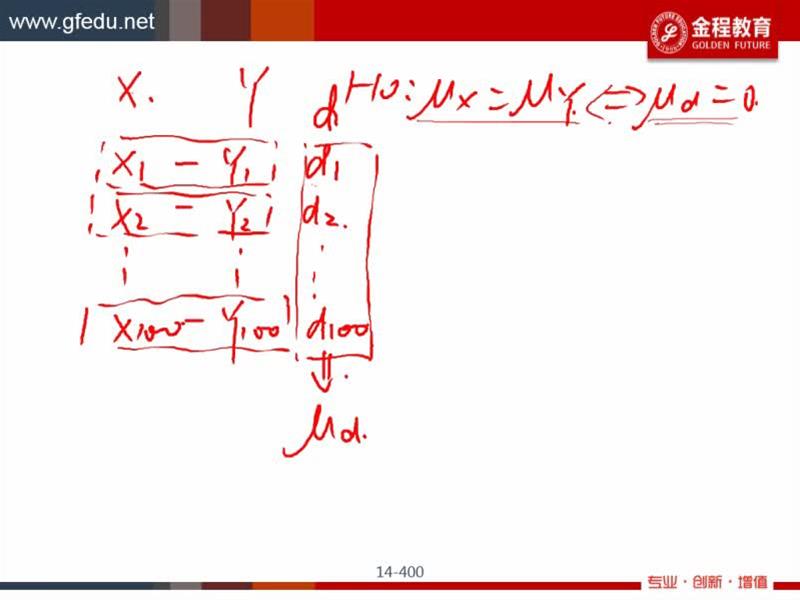 www.gfedu.net
金程教育
GOLDEN FUTURE
X. Y d H0: μx = μY. <=> μd = 0.
X1 - Y1 d1
X2 - Y2 d2.
⋮ ⋮ ⋮
X100 - Y100 d100
⇓.
μd.
14-400
专业·创新·增值